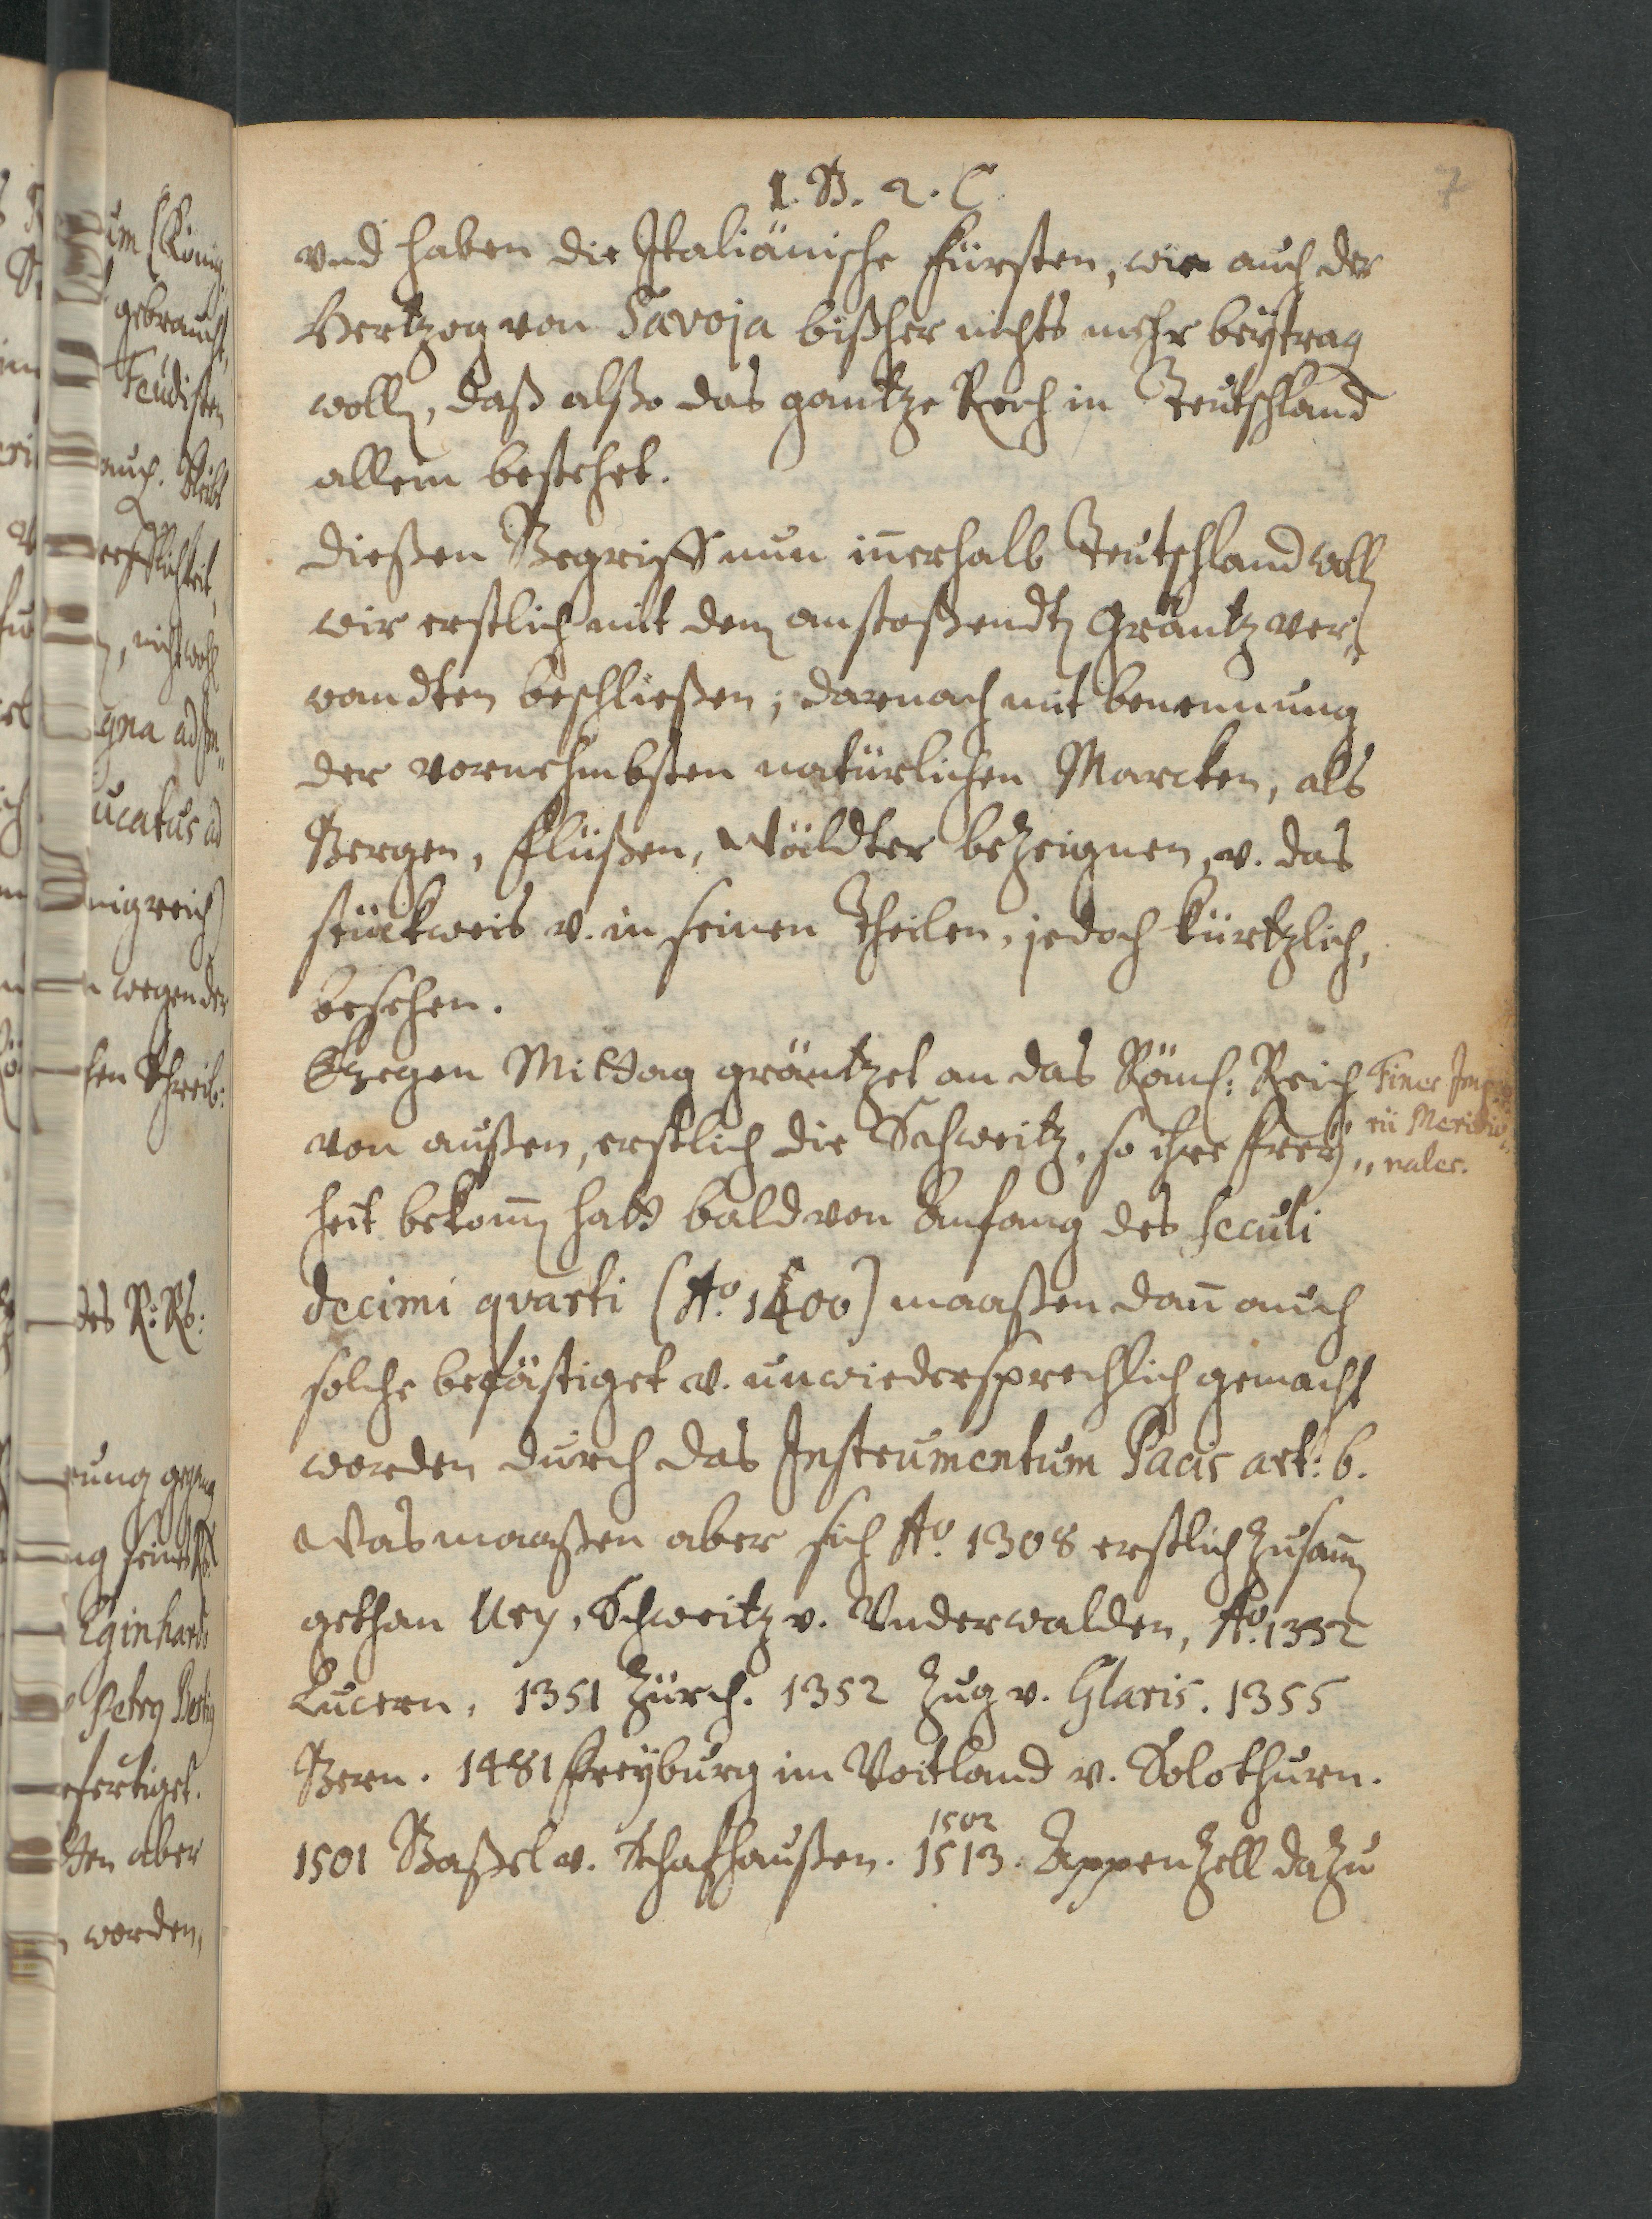 1. B. 2. C.
7
vnd haben die Italiänische Fürsten, wie auch der
Hertzog von Savoja bißher nichts mehr beÿtrag
wollen, daß alßo das gantze Reich in Teutschland
allein bestehet.
Dießen Begriff nun inerhalb Teutschland wollen
wir erstlich mit den anstoßendten Gräntz ver„
wandten beschließen; darnach mit benennung
der vornehmbsten natürlichen Marcken, als
Bergen, Flüßen, Wäldter bezeignen, v. das
stückweis v. in seinen Theilen, jedoch kürtzlich,
besehen.
Gegen Mittag gräntzet an das Röm: Reich
von außen, erstlich die Schweitz, so ihre freÿ„
heit bekomen hatt bald von Anfang des Seculi
decimi qvarti (Aº. 1400) maaßen dan auch
solche befästiget v. unwiedersprechlich gemacht
worden durch das Instrumentum Pacis art: 6.
Was maaßen aber sich Aº. 1308 erstlich zusamen
gethan Ury, Schweitz v. Vnderwalden, Aº. 1332
Lucern, 1351 Zürch. 1352 Zug v. Glaris. 1355
Bern. 1481 Freÿburg im Voitland v. Solothurn.
1502
1501 Baßel v. Schafhaußen. 1513. Appenzell dazu
Fines Impe
rii Meridio„
nales.
gebraucht,
Feudisten
auch.
nicht wohl
ucatus ad
nigreich)
wegen der
Schreib:
des R: Rs:
Eginhards
efertiget.
aber
worden,